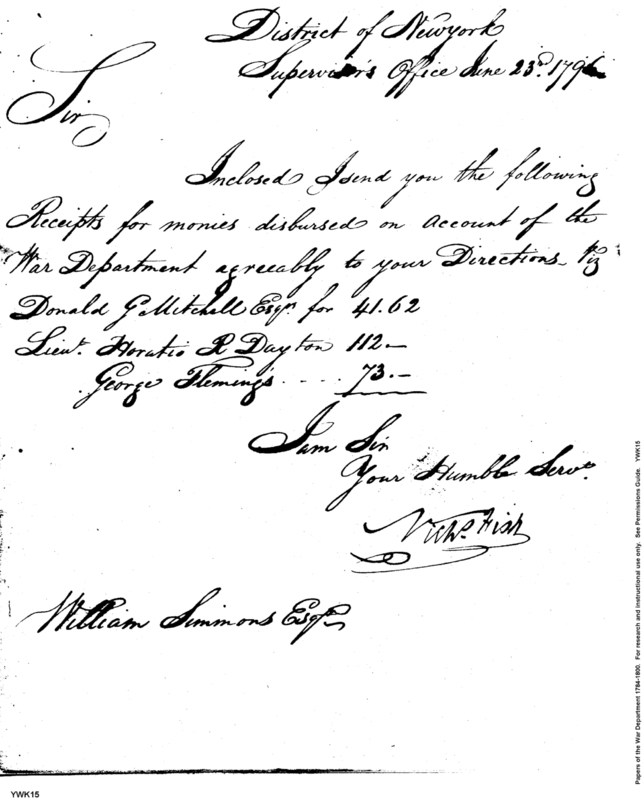 District of Newyork
Supervisor's Office June 23d. 1796
Sir
Inclosed I send you the following
Receipts for monies disbursed on account of the
War Department agreeably to your Directions Viz
Donald G Mitchell Esqr. for 41.62
Lieut. Horatio R Dayton 112.—
George Fleming's .... 73.—
I am Sir
Your Humble Servt.
Nichs. Fish
William Simmons Esqr.
YWK15
Papers of the War Department 1784-1800. For research and instructional use only. See Permissions Guide. YWK15